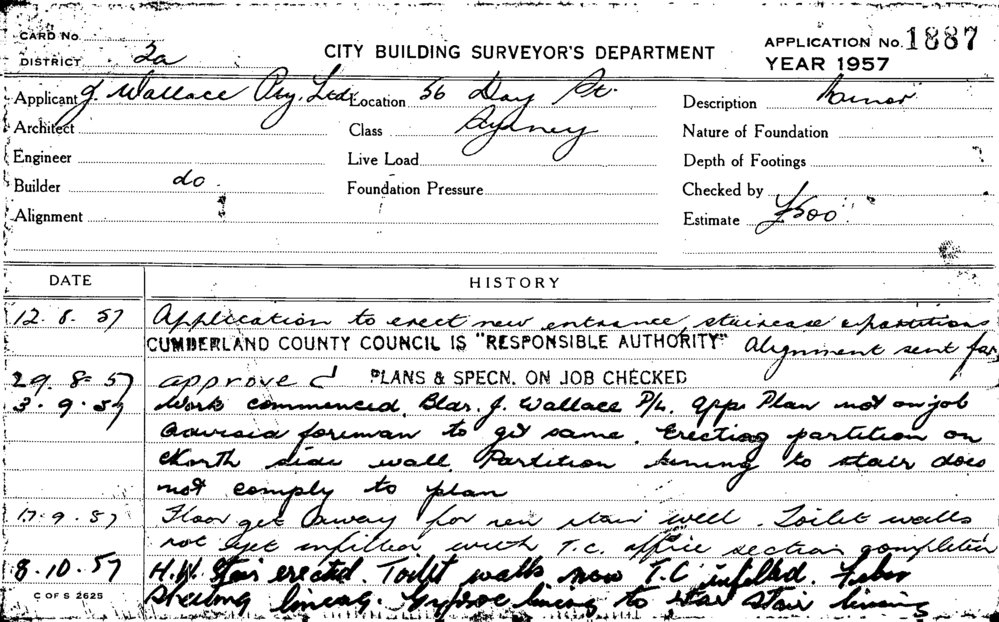 CARD No.
CITY BUILDING SURVEYOR'S DEPARTMENT
APPLICATION No. 1887
DISTRICT 2a
YEAR 1957
Applicant J. Wallace Pty. Ltd. Location 56 Day St. Description Minor
Architect Class Sydney Nature of Foundation
Engineer Live Load Depth of Footings
Builder do. Foundation Pressure Checked by
Alignment Estimate £500
DATE HISTORY
12. 8. 57 Application to erect new entrance, staircase & partitions
CUMBERLAND COUNTY COUNCIL IS "RESPONSIBLE AUTHORITY" Alignment sent for
29. 8. 57 approved PLANS & SPECN. ON JOB CHECKED
3. 9. 57 Work commenced. Bldr. J. Wallace P/L. App. Plan not on job
Advised foreman to get same. Erecting partition on
North side wall. Partition lining to stair does
not comply to plan
17. 9. 57 Floor get away for new stair well. Toilet walls
not yet infilled with T.C. office section completed
8. 10. 57 H.W. Stair erected. Toilet walls now T.C infilled.
sheeting lining. Gyproc lining to stair lining
C OF S 2625